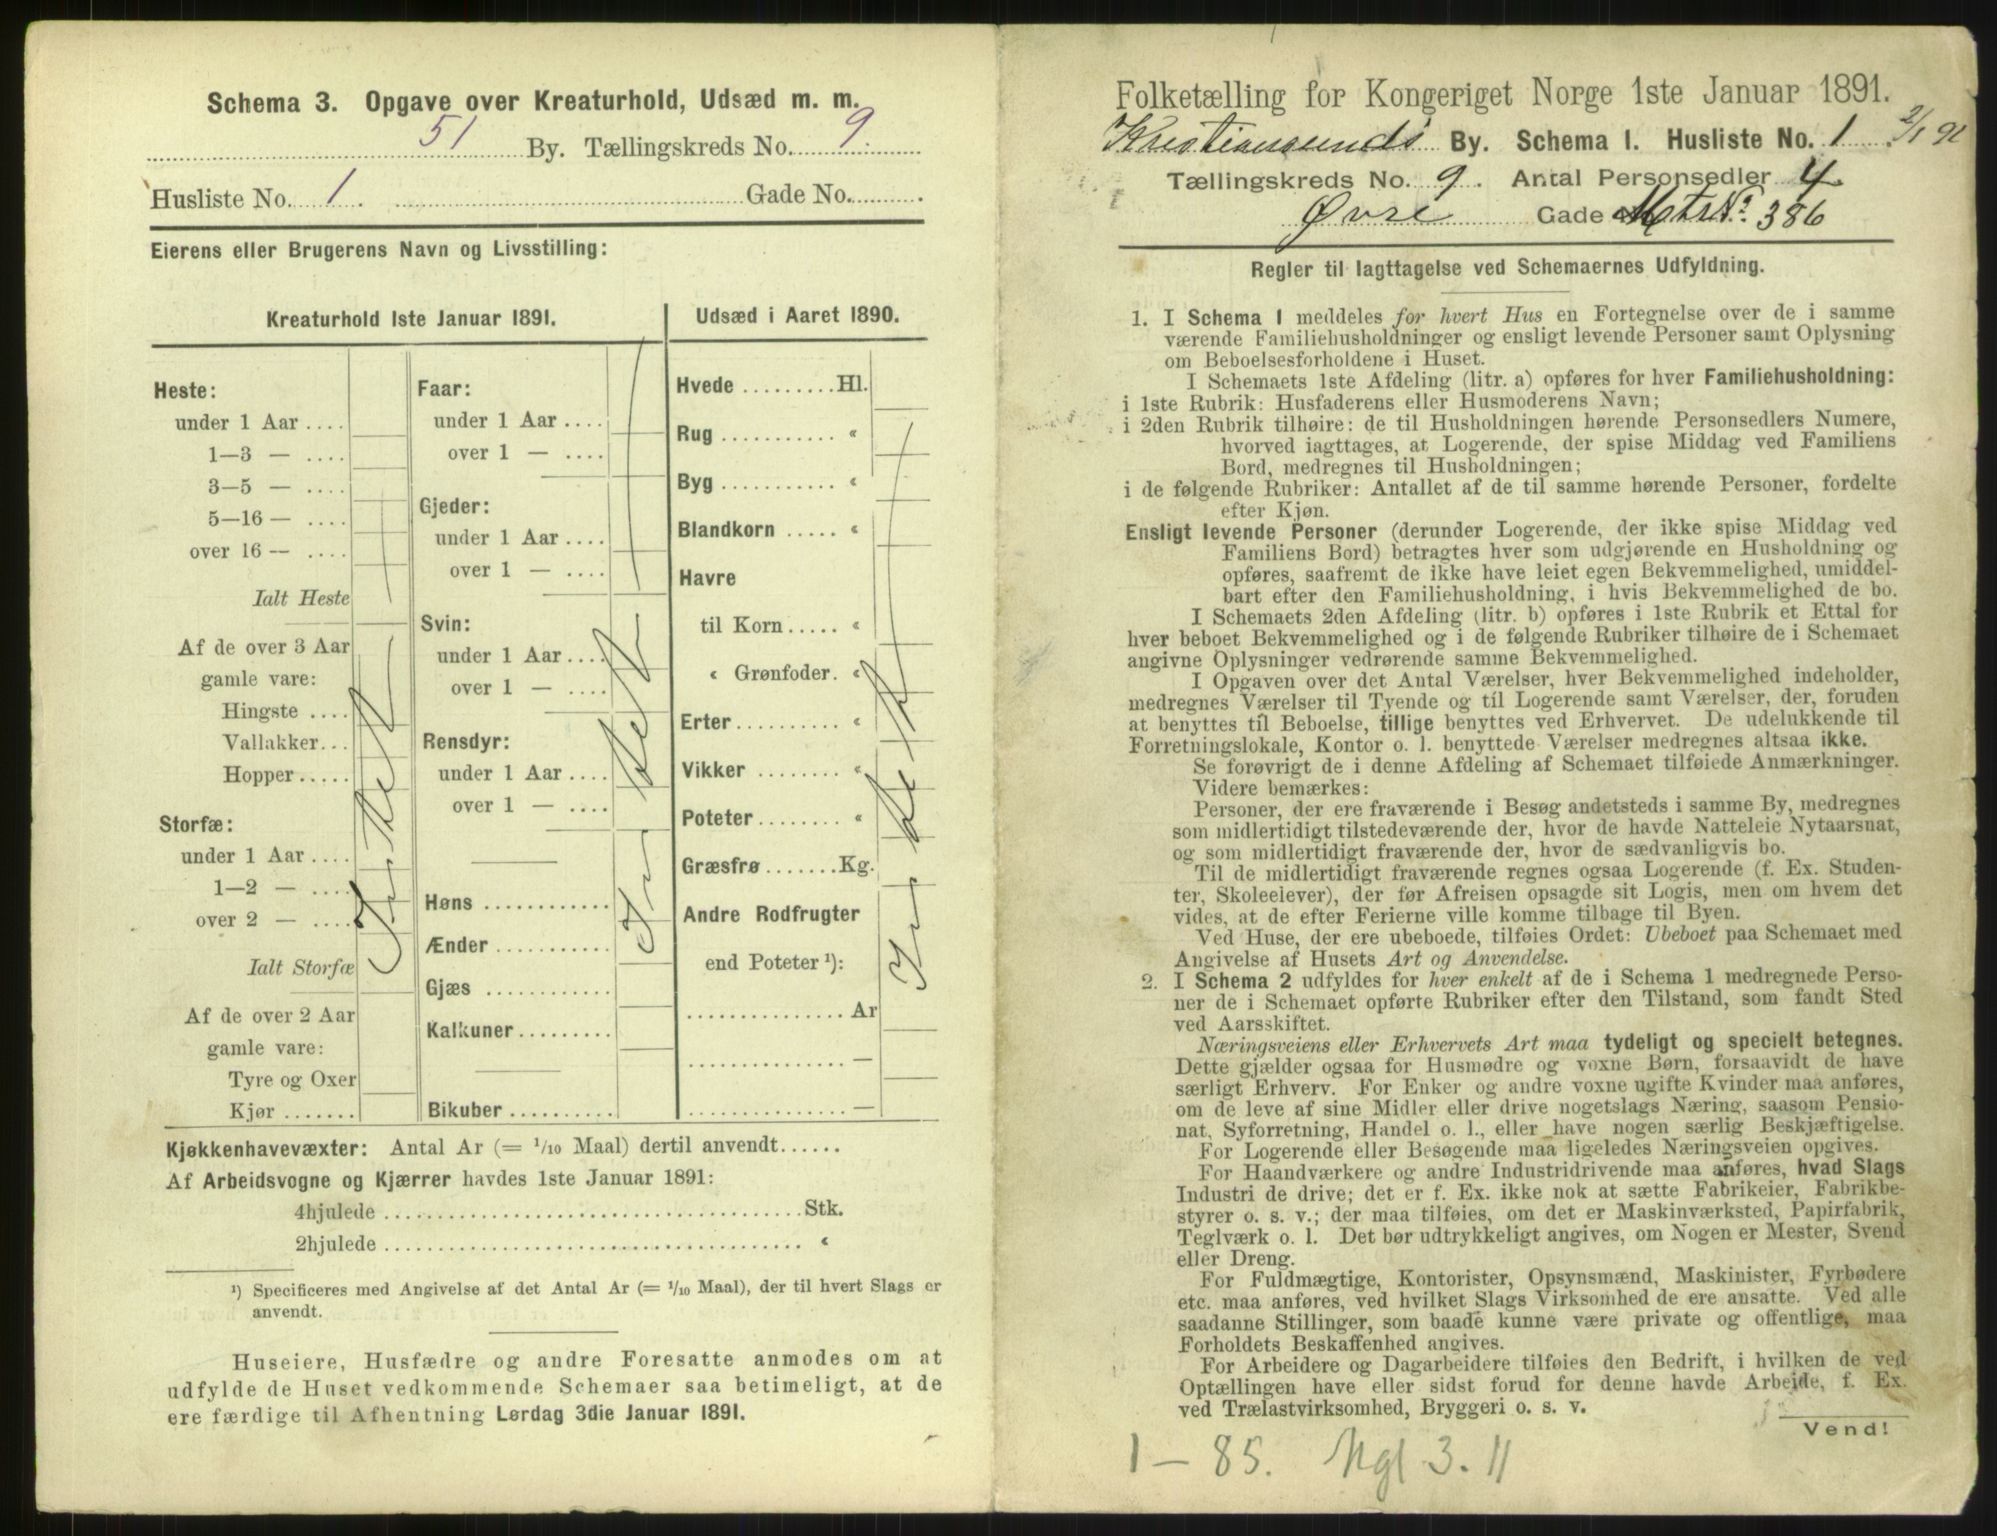 Schema 3. Opgave over Kreaturhold, Udsæd m. m.
51 By. Tællingskreds No. 9.
Husliste No. 1. Gade No.
Eierens eller Brugerens Navn og Livsstilling:
Kreaturhold 1ste Januar 1891.
Heste:
under 1 Aar ....
1—3 — ....
3—5 — ....
5—16 — ....
over 16 — ....
Ialt Heste
Af de over 3 Aar
gamle vare:
Hingste ....
Vallakker...
Hopper.....
Storfæ:
under 1 Aar ....
1—2 — ....
over 2 — ....
Ialt Storfæ
Af de over 2 Aar
gamle vare:
Tyre og Oxer
Kjør .......
Intet
Faar:
under 1 Aar ....
over 1 — ....
Gjeder:
under 1 Aar ....
over 1 — ....
Svin:
under 1 Aar ....
over 1 — ....
Rensdyr:
under 1 Aar ....
over 1 — ....
Høns ............
Ænder ...........
Gjæs ............
Kalkuner.........
Bikuber ..........
Intet
Udsæd i Aaret 1890.
Hvede .........Hl.
Rug ........... «
Byg ........... «
Blandkorn ..... «
Havre
til Korn..... «
« Grønfoder. «
Erter .......... «
Vikker ........ «
Poteter........ «
Græsfrø .......Kg.
Andre Rodfrugter
end Poteter ¹):
............... Ar
............... —
............... —
Intet
Kjøkkenhavevæxter: Antal Ar (= 1/10 Maal) dertil anvendt......
Af Arbeidsvogne og Kjærrer havdes 1ste Januar 1891:
4hjulede ......................................Stk.
2hjulede ...................................... «
¹) Specificeres med Angivelse af det Antal Ar (= 1/10 Maal), der til hvert Slags er
anvendt.
Huseiere, Husfædre og andre Foresatte anmodes om at
udfylde de Huset vedkommende Schemaer saa betimeligt, at de
ere færdige til Afhentning Lørdag 3die Januar 1891.
Folketælling for Kongeriget Norge 1ste Januar 1891.
Kristianssunds By. Schema I. Husliste No. 1. 2/1 91
Tællingskreds No. 9. Antal Personsedler 4
Øvre Gade Mtr No. 386
Regler til Iagttagelse ved Schemaernes Udfyldning.
1. I Schema 1 meddeles for hvert Hus en Fortegnelse over de i samme
værende Familiehusholdninger og ensligt levende Personer samt Oplysning
om Beboelsesforholdene i Huset.
I Schemaets 1ste Afdeling (litr. a) opføres for hver Familiehusholdning:
i 1ste Rubrik: Husfaderens eller Husmoderens Navn;
i 2den Rubrik tilhøire: de til Husholdningen hørende Personsedlers Numere,
hvorved iagttages, at Logerende, der spise Middag ved Familiens
Bord, medregnes til Husholdningen;
i de følgende Rubriker: Antallet af de til samme hørende Personer, fordelte
efter Kjøn.
Ensligt levende Personer (derunder Logerende, der ikke spise Middag ved
Familiens Bord) betragtes hver som udgjørende en Husholdning og
opføres, saafremt de ikke have leiet egen Bekvemmelighed, umiddel-
bart efter den Familiehusholdning, i hvis Bekvemmelighed de bo.
I Schemaets 2den Afdeling (litr. b) opføres i 1ste Rubrik et Ettal for
hver beboet Bekvemmelighed og i de følgende Rubriker tilhøire de i Schemaet
angivne Oplysninger vedrørende samme Bekvemmelighed.
I Opgaven over det Antal Værelser, hver Bekvemmelighed indeholder,
medregnes Værelser til Tyende og til Logerende samt Værelser, der, foruden
at benyttes til Beboelse, tillige benyttes ved Erhvervet. De udelukkende til
Forretningslokale, Kontor o. l. benyttede Værelser medregnes altsaa ikke.
Se forøvrigt de i denne Afdeling af Schemaet tilføiede Anmærkninger.
Videre bemærkes:
Personer, der ere fraværende i Besøg andetsteds i samme By, medregnes
som midlertidigt tilstedeværende der, hvor de havde Natteleie Nytaarsnat,
og som midlertidigt fraværende der, hvor de sædvanligvis bo.
Til de midlertidigt fraværende regnes ogsaa Logerende (f. Ex. Studen-
ter, Skoleelever), der før Afreisen opsagde sit Logis, men om hvem det
vides, at de efter Ferierne ville komme tilbage til Byen.
Ved Huse, der ere ubeboede, tilføies Ordet: Ubeboet paa Schemaet med
Angivelse af Husets Art og Anvendelse.
2. I Schema 2 udfyldes for hver enkelt af de i Schema 1 medregnede Perso-
ner de i Schemaet opførte Rubriker efter den Tilstand, som fandt Sted
ved Aarsskiftet.
Næringsveiens eller Erhvervets Art maa tydeligt og specielt betegnes.
Dette gjælder ogsaa for Husmødre og voxne Børn, forsaavidt de have
særligt Erhverv. For Enker og andre voxne ugifte Kvinder maa anføres,
om de leve af sine Midler eller drive nogetslags Næring, saasom Pensio-
nat, Syforretning, Handel o. l., eller have nogen særlig Beskjæftigelse.
For Logerende eller Besøgende maa ligeledes Næringsveien opgives.
For Haandværkere og andre Industridrivende maa anføres, hvad Slags
Industri de drive; det er f. Ex. ikke nok at sætte Fabrikeier, Fabrikbe-
styrer o. s. v.; der maa tilføies, om det er Maskinværksted, Papirfabrik,
Teglværk o. l. Det bør udtrykkeligt angives, om Nogen er Mester, Svend
eller Dreng.
For Fuldmægtige, Kontorister, Opsynsmænd, Maskinister, Fyrbødere
etc. maa anføres, ved hvilket Slags Virksomhed de ere ansatte. Ved alle
saadanne Stillinger, som baade kunne være private og offentlige, maa
Forholdets Beskaffenhed angives.
For Arbeidere og Dagarbeidere tilføies den Bedrift, i hvilken de ved
Optællingen have eller sidst forud for denne havde Arbeide, f. Ex.
ved Trælastvirksomhed, Bryggeri o. s. v.
Vend!
1 — 85. Mgl 3. 11